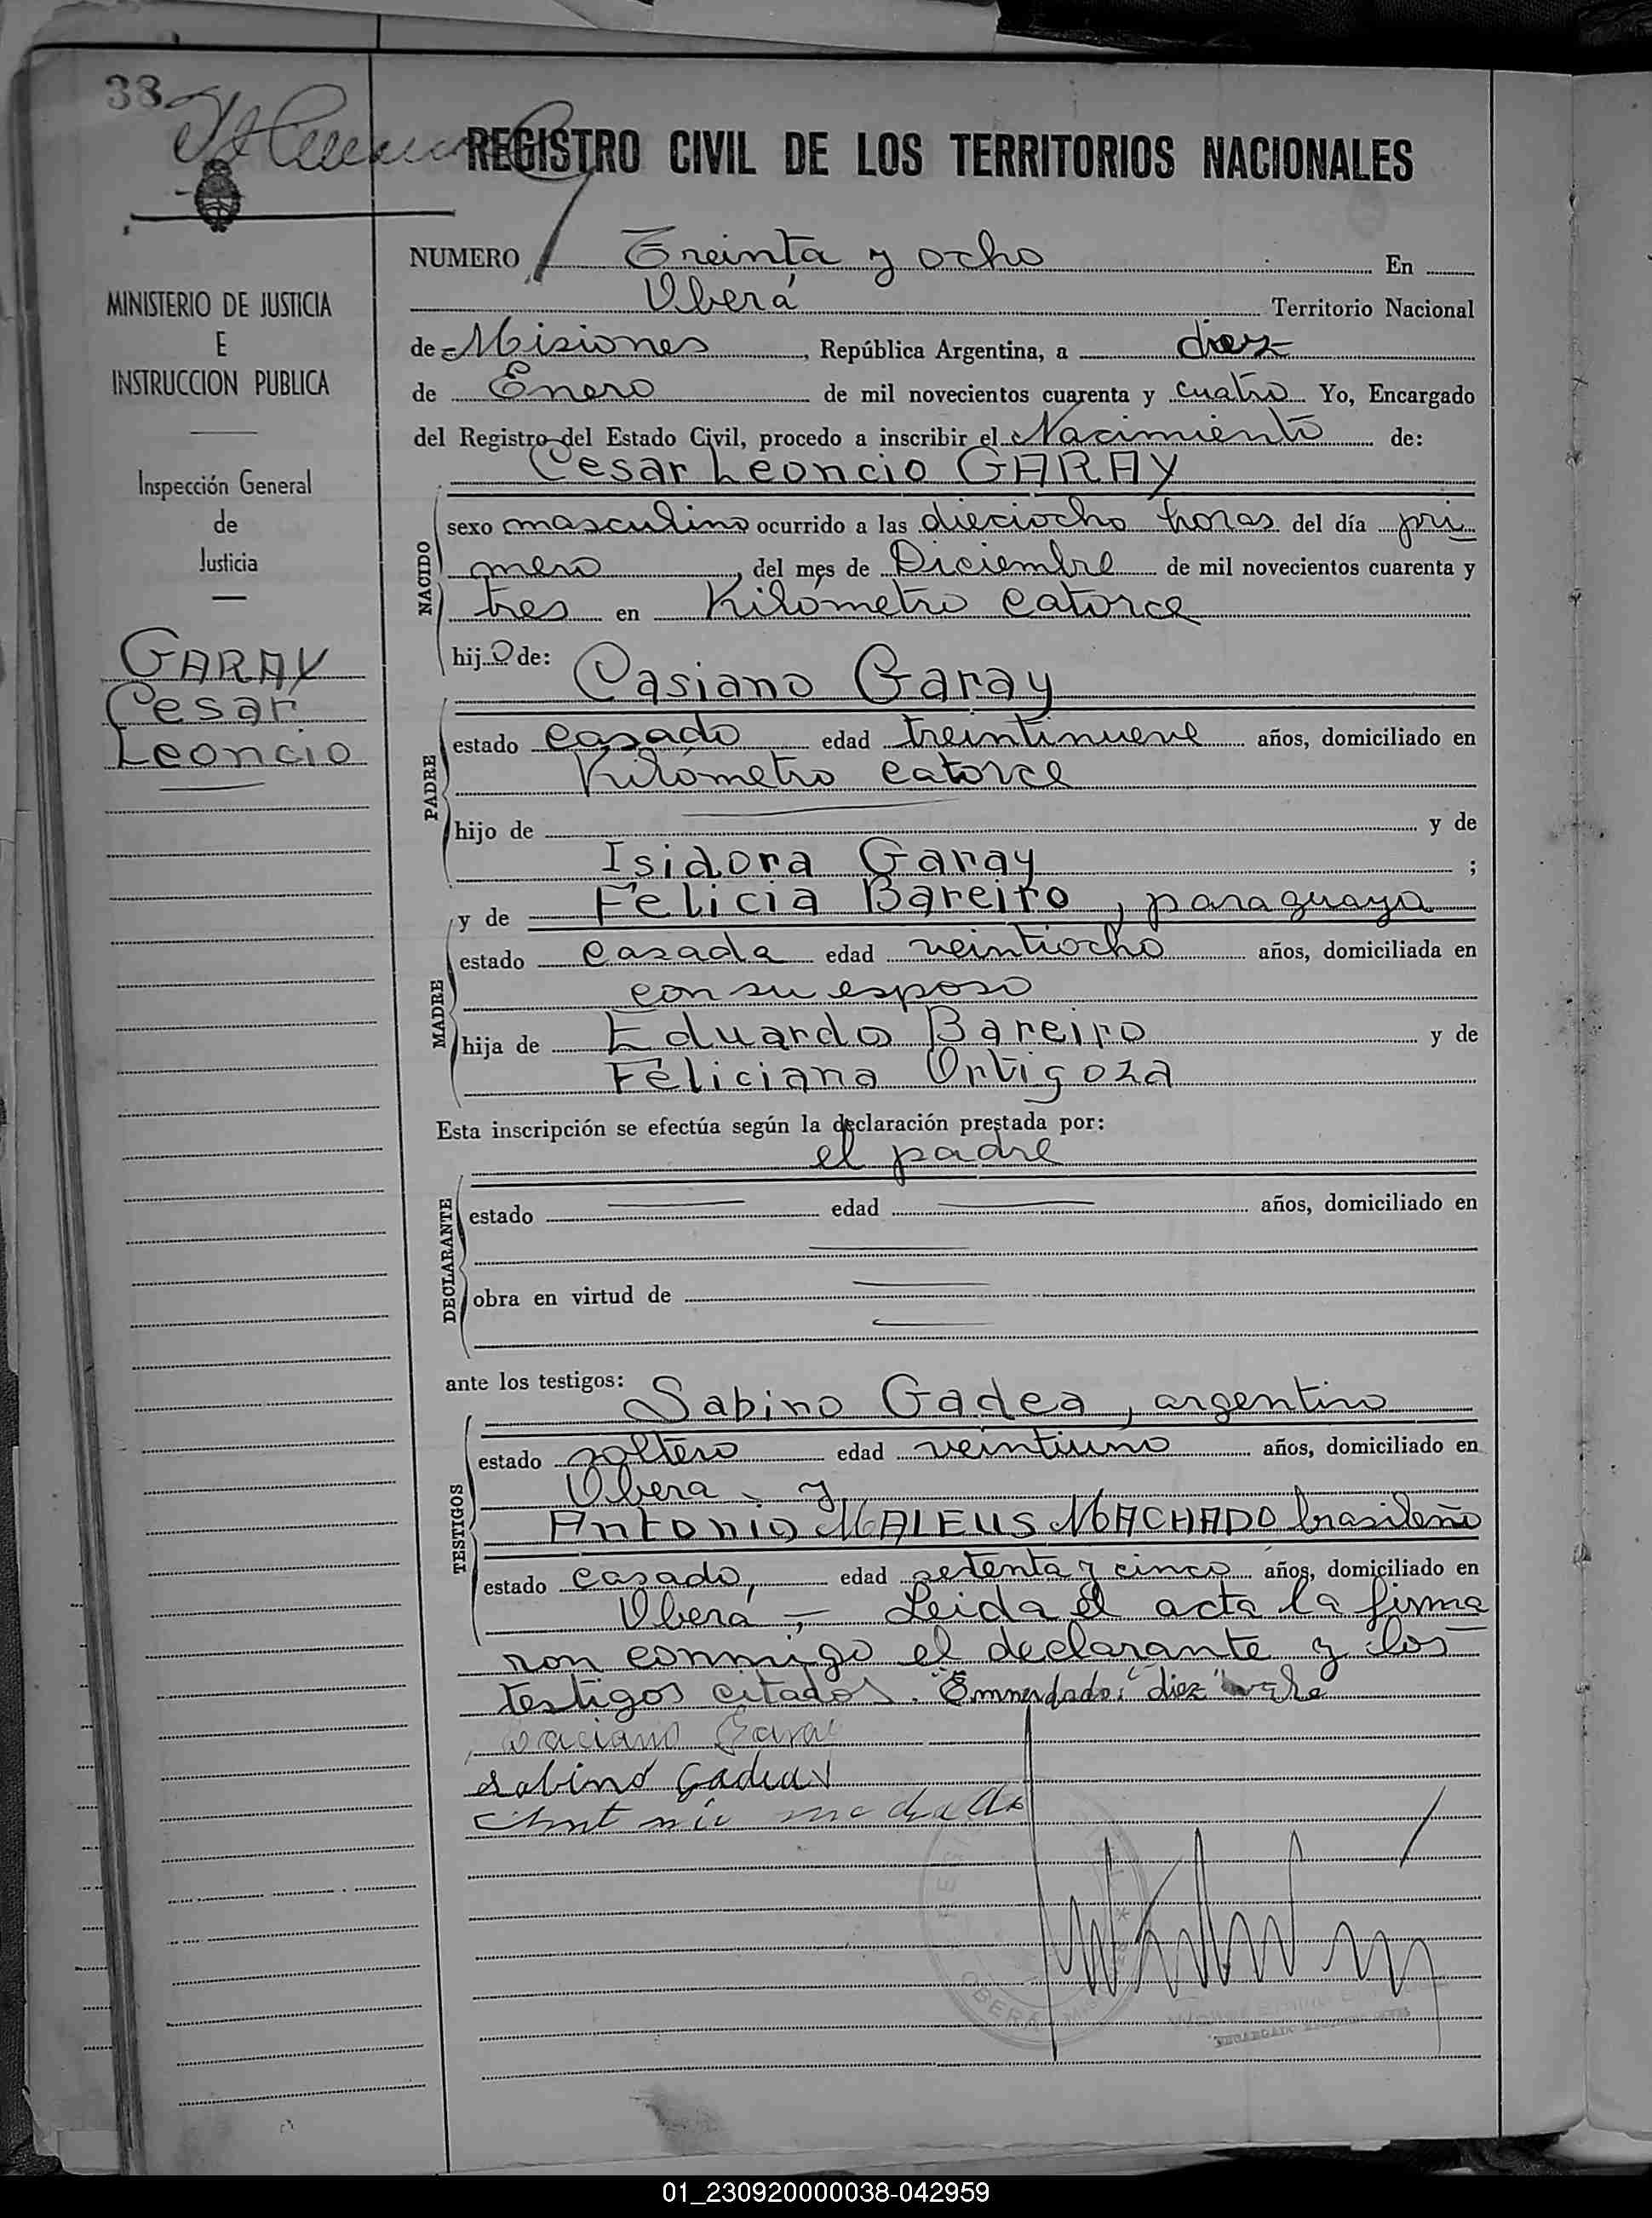 38
REGISTRO CIVIL DE LOS TERRITORIOS NACIONALES
NUMERO Treinta y ocho En
Oberá Territorio Nacional
de Misiones, República Argentina, a diez
de Enero de mil novecientos cuarenta y cuatro Yo, Encargado
del Registro del Estado Civil, procedo a inscribir el Nacimiento de:
Cesar Leoncio GARAY
NACIDO
sexo masculino ocurrido a las dieciocho horas del día pri
mero, del mes de Diciembre de mil novecientos cuarenta y
tres en Kilómetro catorce
hijo de:
Casiano Garay
PADRE
estado casado edad treintinueve años, domiciliado en
Kilómetro catorce
hijo de y de
Isidora Garay ;
y de Felicia Bareiro, paraguaya
MADRE
estado casada edad veintiocho años, domiciliada en
con su esposo
hija de Eduardo Bareiro y de
Feliciana Ortigoza
Esta inscripción se efectúa según la declaración prestada por:
el padre
DECLARANTE
estado edad años, domiciliado en
obra en virtud de
ante los testigos:
Sabino Gadea, argentino
TESTIGOS
estado soltero edad veintiuno años, domiciliado en
Obera. y
Antonio MALEUS MACHADO brasileño
estado casado, edad setenta y cinco años, domiciliado en
Oberá - Leida el acta la firma
ron conmigo el declarante y los
testigos citados. Emmendado: "diez" vale
Casiano Garai
Sabino Gadea
Antonio machado
OBERA
MINISTERIO DE JUSTICIA
E
INSTRUCCION PUBLICA
Inspección General
de
Justicia
GARAY
Cesar
Leoncio
01_230920000038-042959